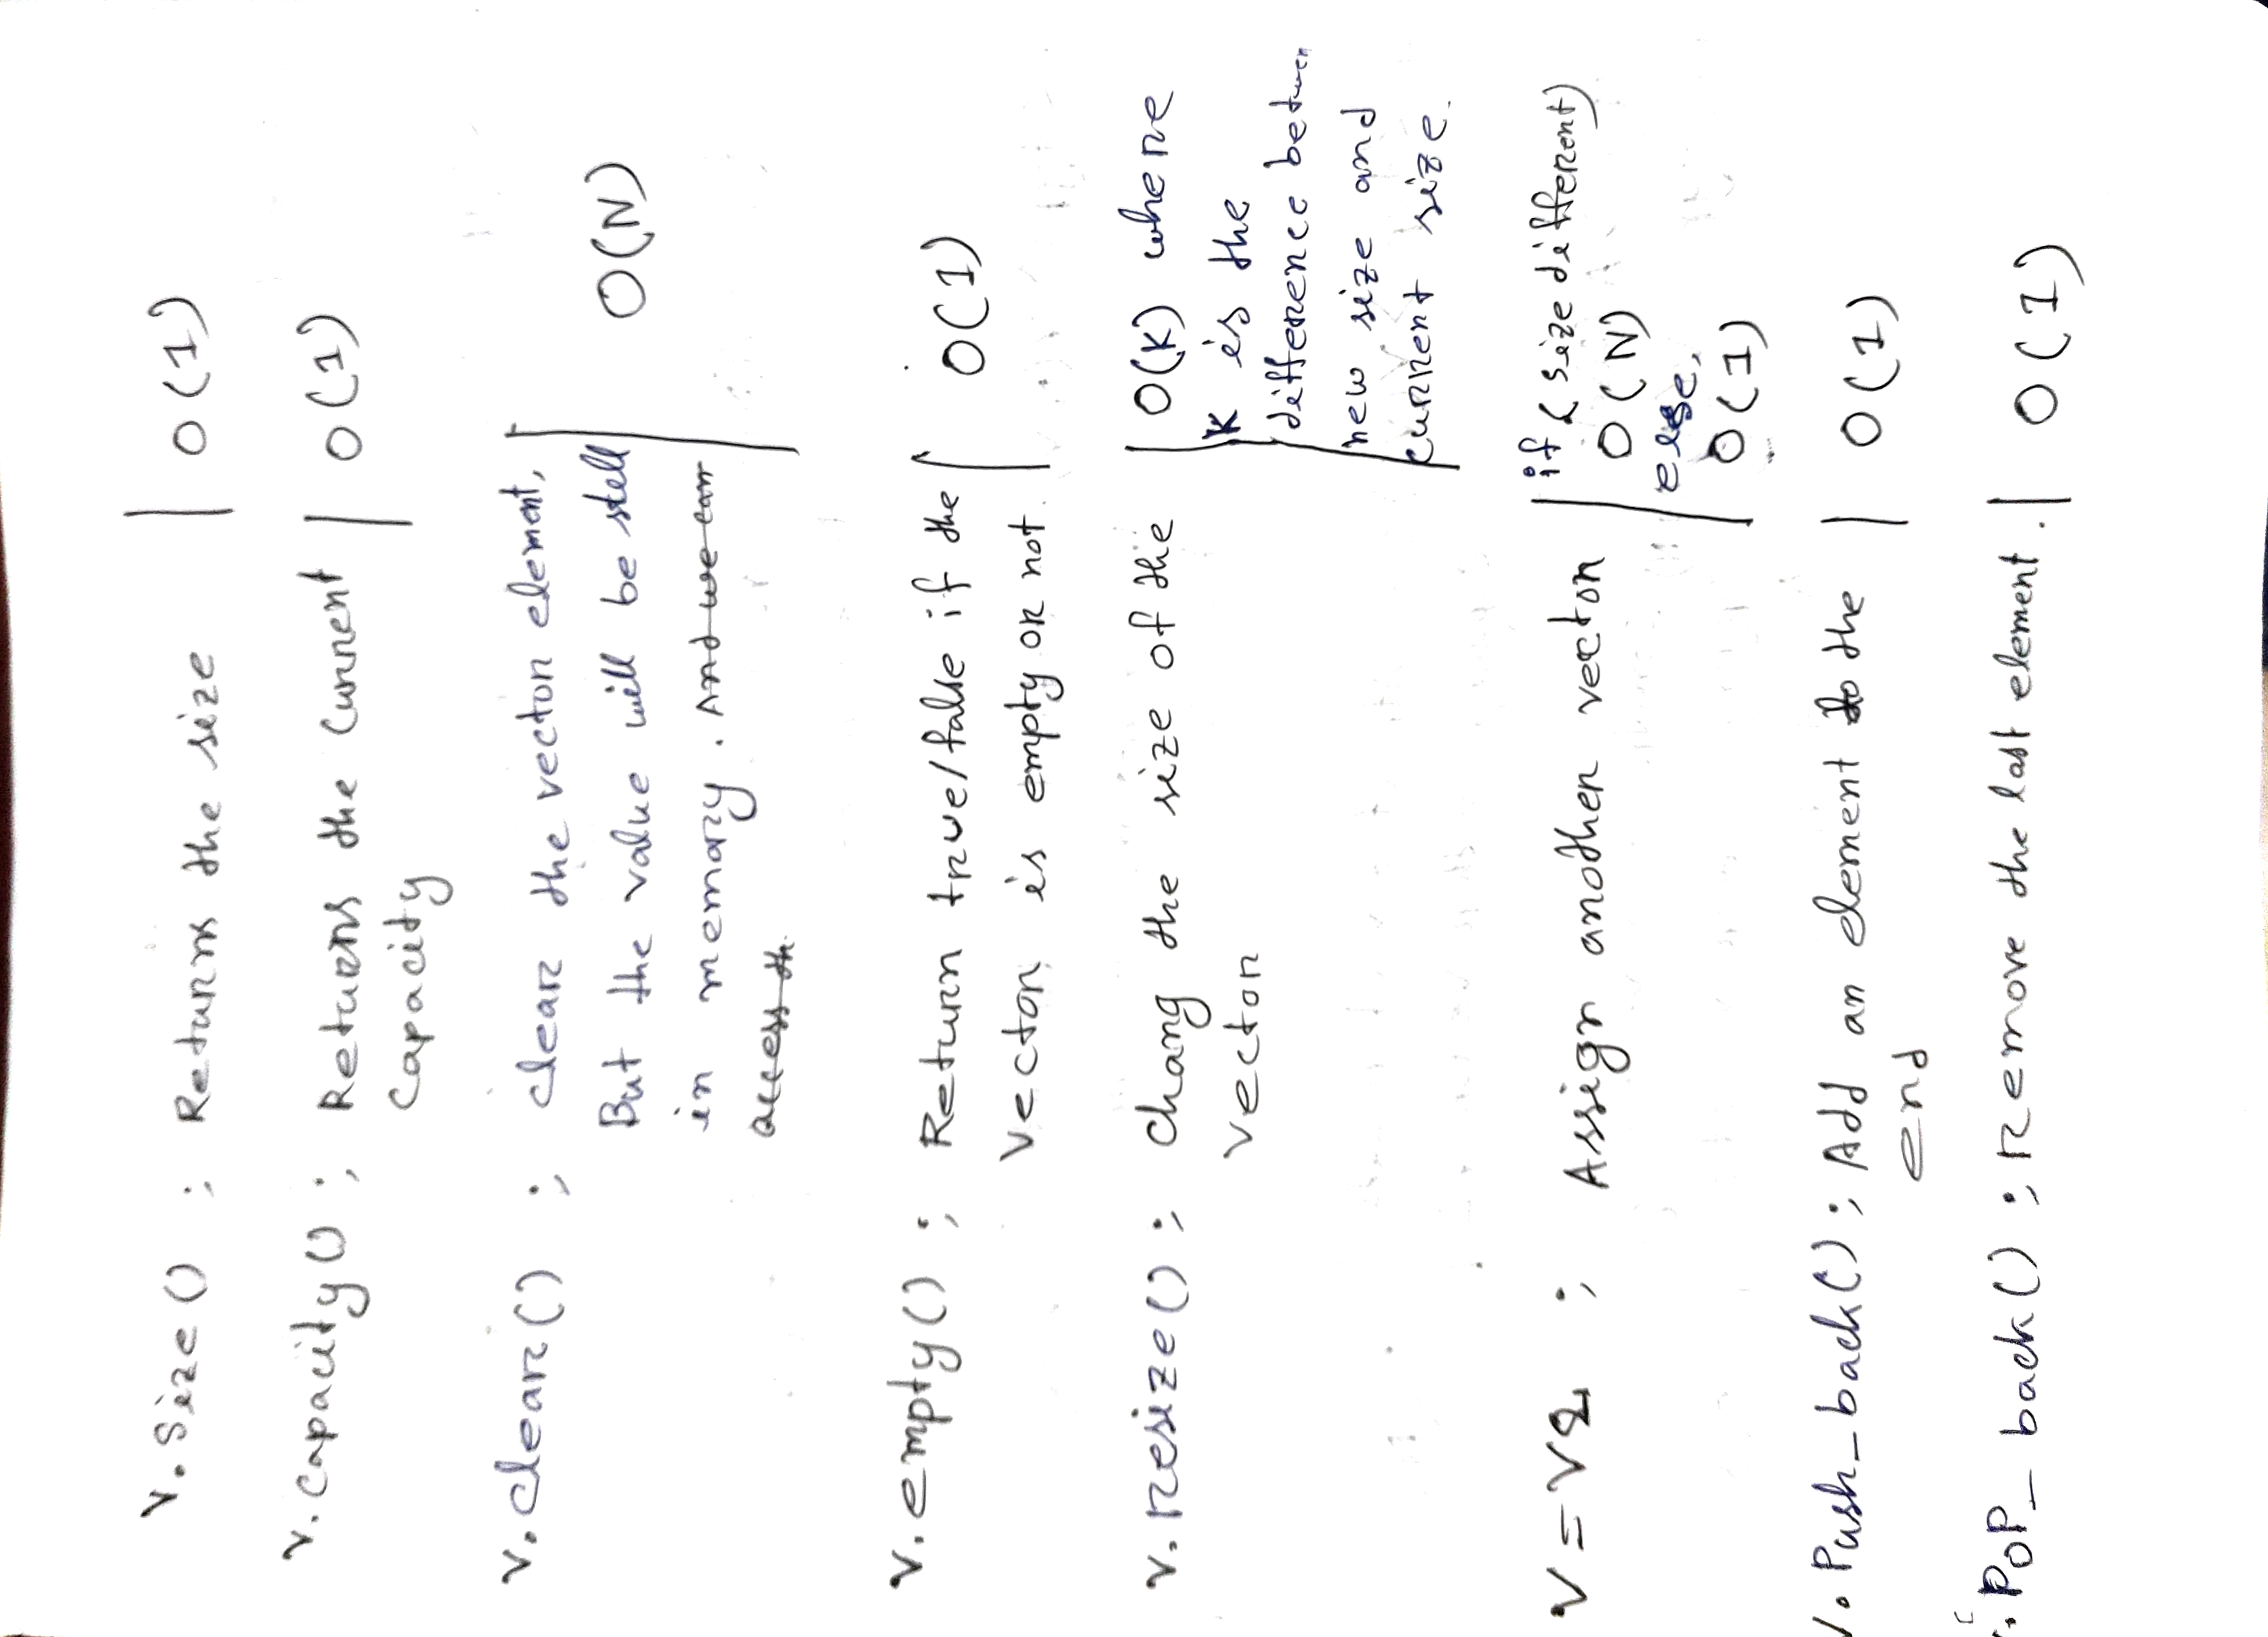 v. Size() ; Returns the size | O(1)
v. Capacity() ; Returns the Current | O(1)
Capacity
v. clear() ; clear the vector element,
But the value will be still | O(N)
in memory. And we can
access th
v. empty() ; Return true/false if the | O(1)
Vector is empty or not.
v. resize() ; Chang the size of the | O(K) where
Vector K is the
difference between
new size and
current size.
V = V2 ; Assign another vector | if (size different)
O(N)
else,
O(1)
. Push_back() ; Add an element to the | O(1)
end
. PoP_back() ; Remove the last element. | O(1)